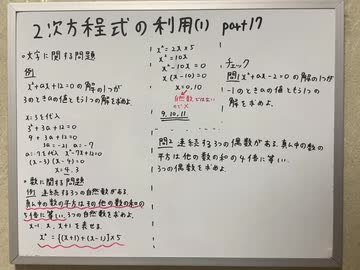 2次方程式の利用(1) part17
◦文字に関する問題
例 x²+ax+12=0の解の1つが
3のときaの値ともう1つの解を求めよ。
x=3を代入
3²+3a+12=0
9+3a+12=0
3a=-21 a=-7
a=-7を代入 x²-7x+12=0
(x-3)(x-4)=0
x=4,3
◦数に関する問題
例 連続する3つの自然数がある。
真ん中の数の平方はその他の数の和の
5倍に等しい。3つの自然数を求めよ。
x-1, x, x+1と表せる。
x²={(x+1)+(x-1)}×5
x²=2x×5
x²=10x
x²-10x=0
x(x-10)=0
x=0,10
自然数ではない
ので×
9,10,11
チェック
問1 x²+ax-2=0の解の1つが
-1のときaの値ともう1つの
解を求めよ。
問2 連続する3つの偶数がある。真ん中の数
の平方は他の数の和の4倍に等しい。
3つの偶数を求めよ。